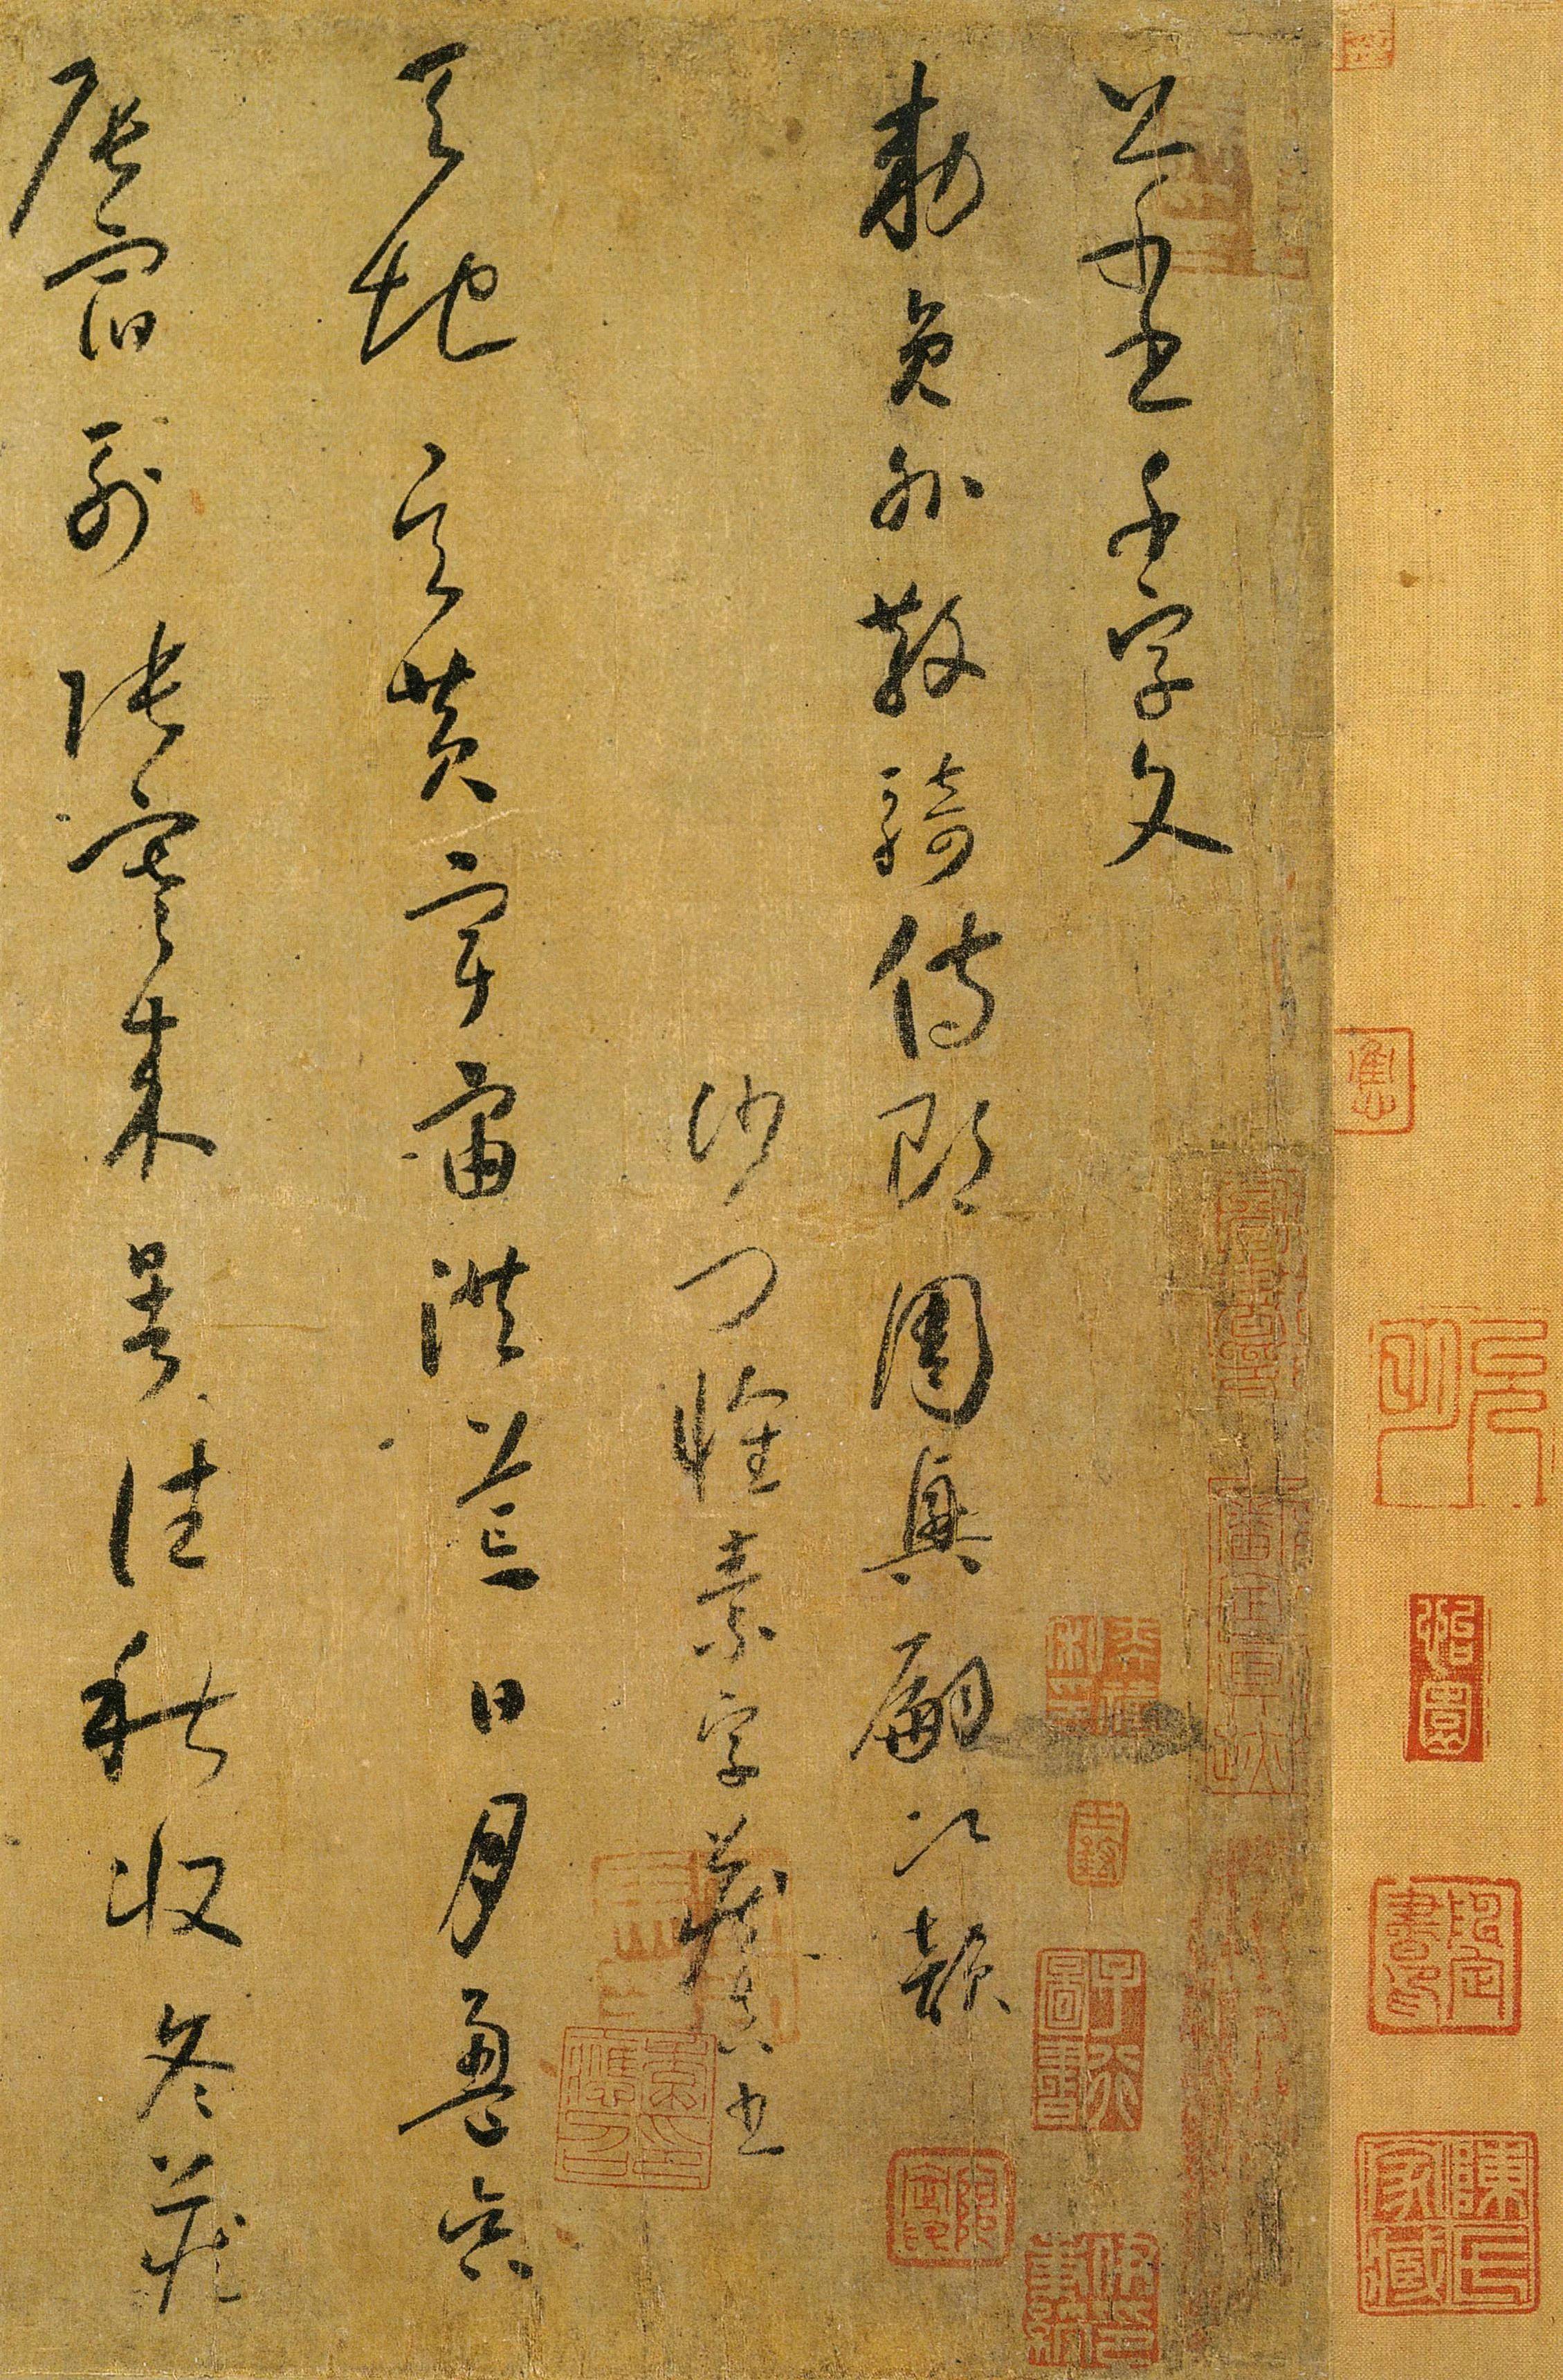 草書千字文
敕員外散騎侍郎周興嗣次韻
沙門懷素字藏真書
天地玄黃宇宙洪荒日月盈昃
辰宿列張寒來暑往秋收冬藏